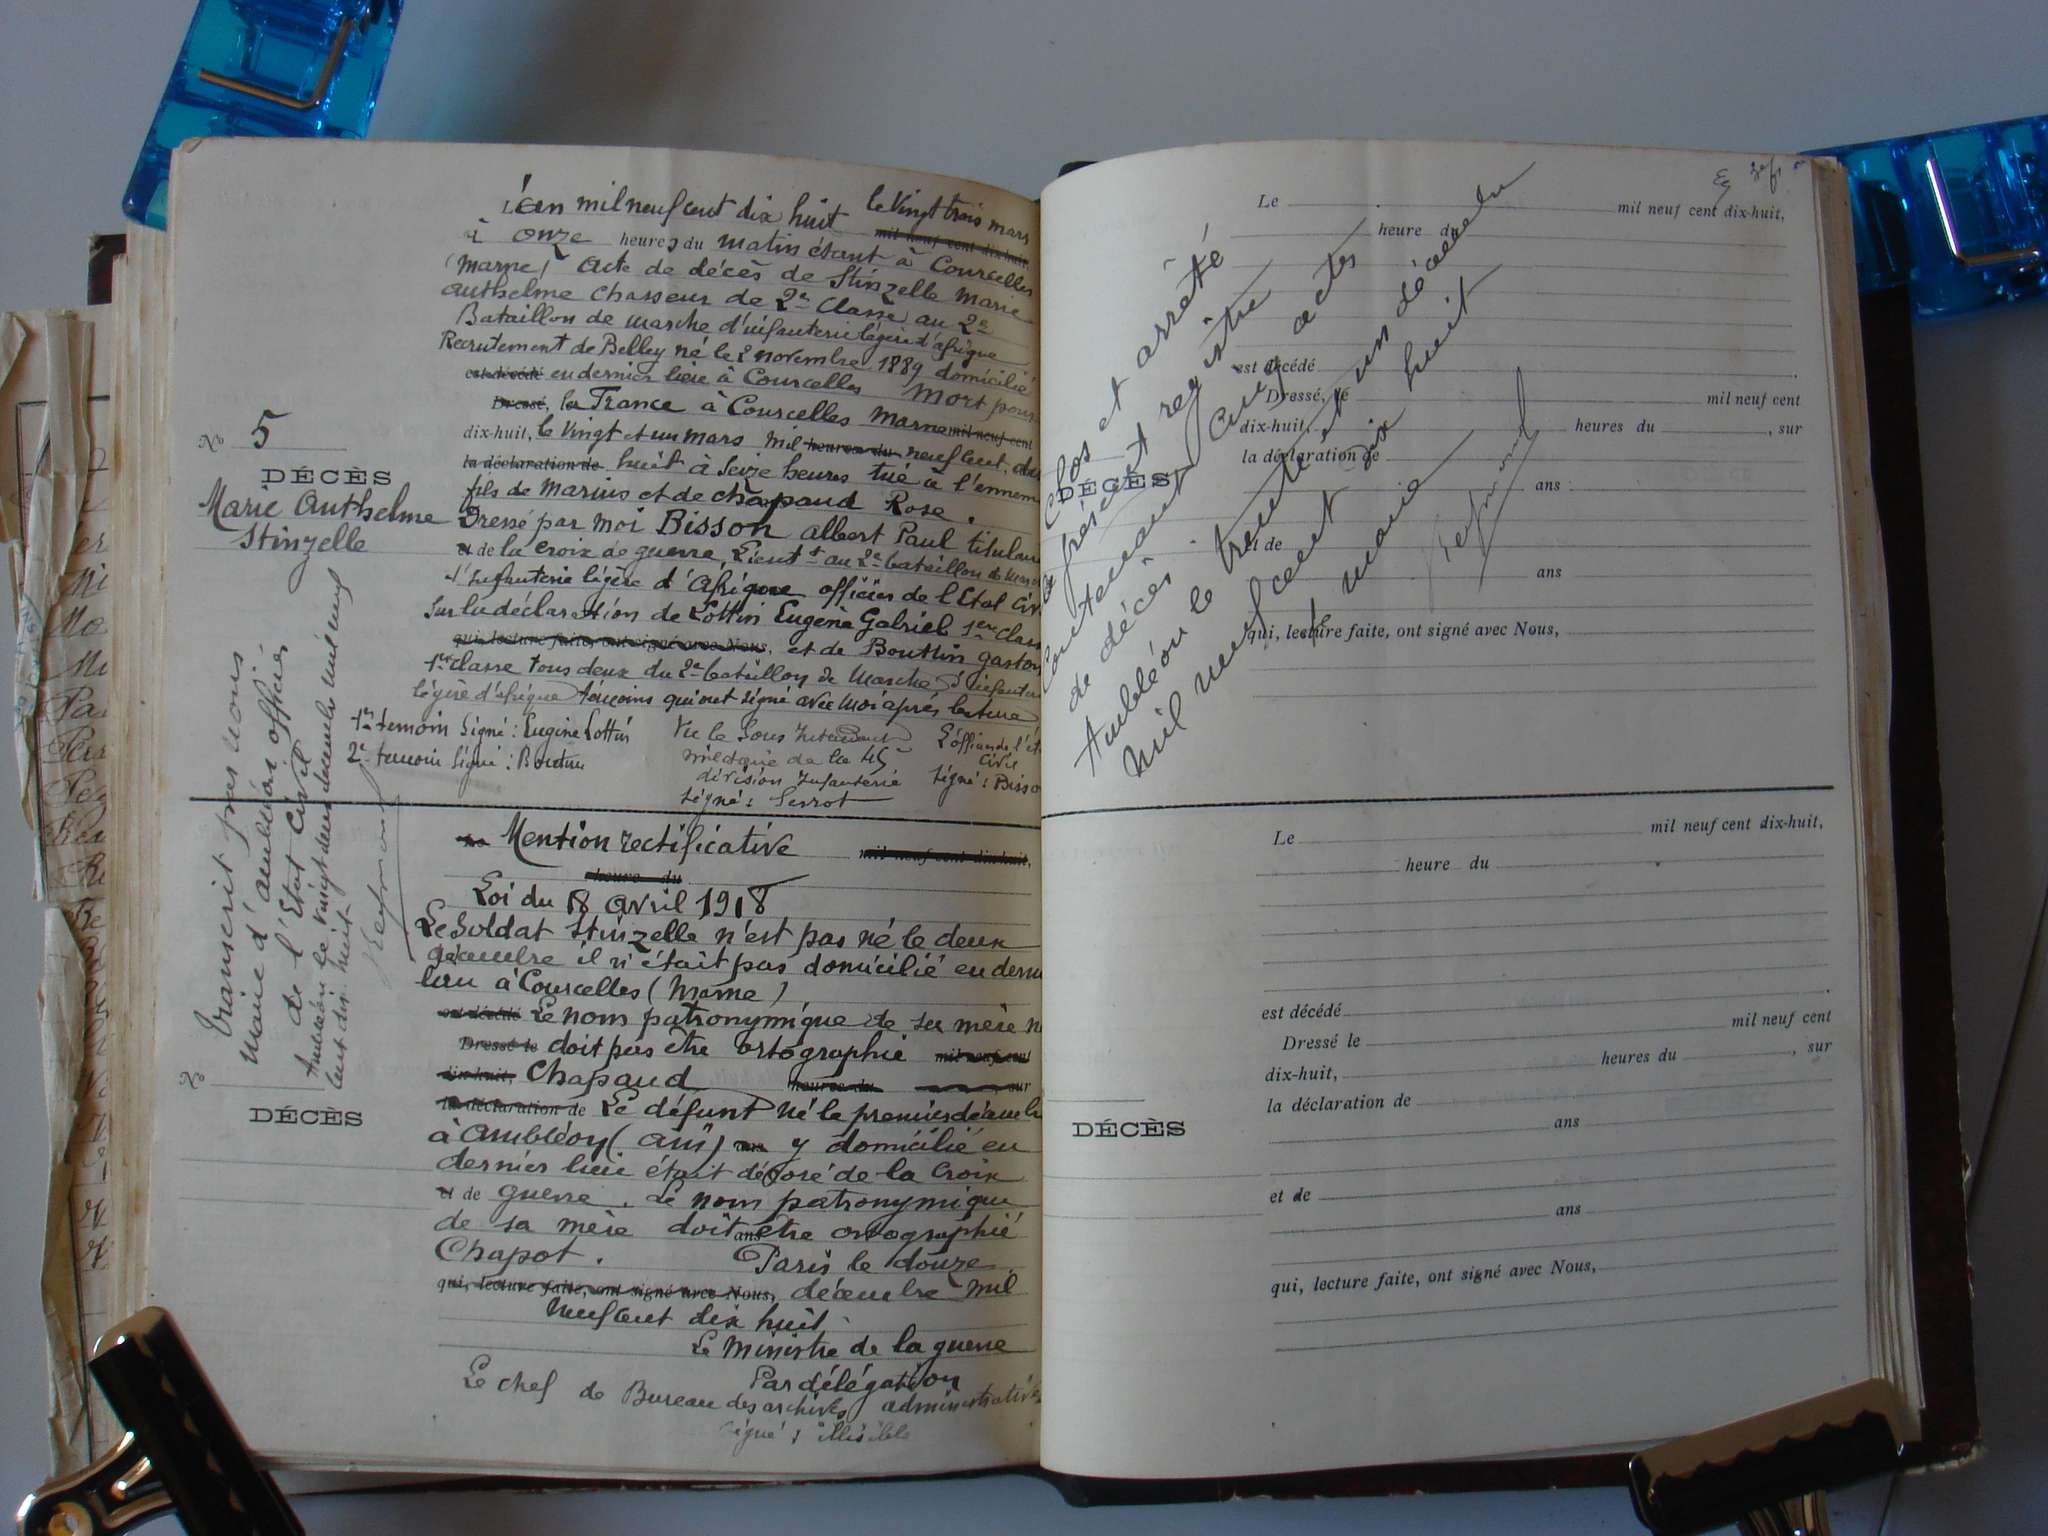 L'an mil neuf cent dix huit le vingt trois mars
mil neuf cent dix-huit,
à onze heures du matin étant à Courcelles
(Marne) Acte de décès de Stinzelle Marie
Anthelme Chasseur de 2e Classe au 2e
Bataillon de marche d'infanterie légère d'afrique
Recrutement de Belley né le 2 novembre 1889 domicilié
est décédé en dernier lieu à Courcelles Mort pour
Dressé, la France à Courcelles Marne mil neuf cent
dix-huit, le vingt et un mars mil heures du neuf cent, dix
la déclaration de huit à seize heures tué à l'ennemi
fils de Marius et de chapaud Rose.
Dressé par moi Bisson albert Paul titulaire
et de la croix de guerre, Lieutt au 2e bataillon de marche
d'infanterie légère d'Afrique officier de l'Etat Civ
Sur la déclaration de Lottin Eugène Gabriel 1ere Class
qui, lecture faite, ont signé avec Nous, et de Bouttin gaston
1ere classe tous deux du 2e bataillon de Marche d'infanterie
légère d'afrique témoins qui ont signé avec Moi après lecture
1er temoin Signé : Eugène Lottin
2e temoin Signé : Bouttin
Vu le Sous Intendant
militaire de la 45
division Infanterie
Signé : Serrot
L'officier de l'ét
Civil
Signé : Bisso
No 5
DÉCÈS
Marie Anthelme
Stinzelle
Transcrit par nous
Maire d'ambléon officier
de l'Etat Civil
Ambléon le vingt deux decembre mil neuf
cent dix-huit
Mention rectificative mil neuf cent dix-huit,
heure du
Loi du 18 avril 1918
Le Soldat Stinzelle n'est pas né le deux
décembre il n'était pas domicilié en dernier
lieu à Courcelles (Marne)
est décédé Le nom patronymique de sa mère n
Dressé le doit pas être ortographié mil neuf cent
dix-huit, Chapaud heures du sur
la déclaration de Le défunt né le premier décembre
à Ambléon (Ain) y domicilié en
dernier lieu était décoré de la Croix
et de guerre. Le nom patronymique
de sa mère doit ans être ortographié
Chapot. Paris le douze
qui, lecture faite, ont signé avec Nous, décembre mil
neuf cent dix huit.
Le Ministre de la guerre
Par délégation
Le chef de Bureau des archives administratives
Signé : illisible
No
DÉCÈS
Clos et arrêté
le présent registre
Contenant Cinq actes
de décès.
Ambléon le trente et un décembre
mil neuf cent dix huit
Le maire
Le mil neuf cent dix-huit,
heure du
est décédé
Dressé, le mil neuf cent
dix-huit, heures du , sur
la déclaration de
ans
DÉCÈS
et de
ans
qui, lecture faite, ont signé avec Nous,
Le mil neuf cent dix-huit,
heure du
est décédé
Dressé le mil neuf cent
dix-huit, heures du , sur
la déclaration de
ans
DÉCÈS
et de
ans
qui, lecture faite, ont signé avec Nous,